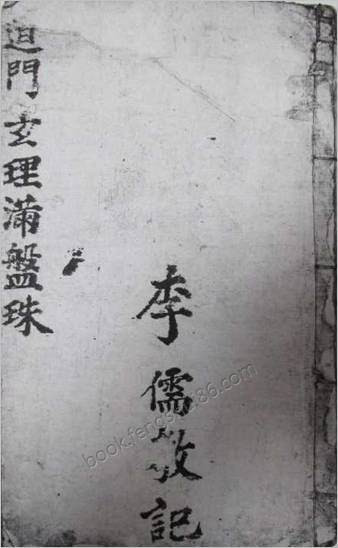 門玄理滿盤珠
李儒記
book.fengshui86.com